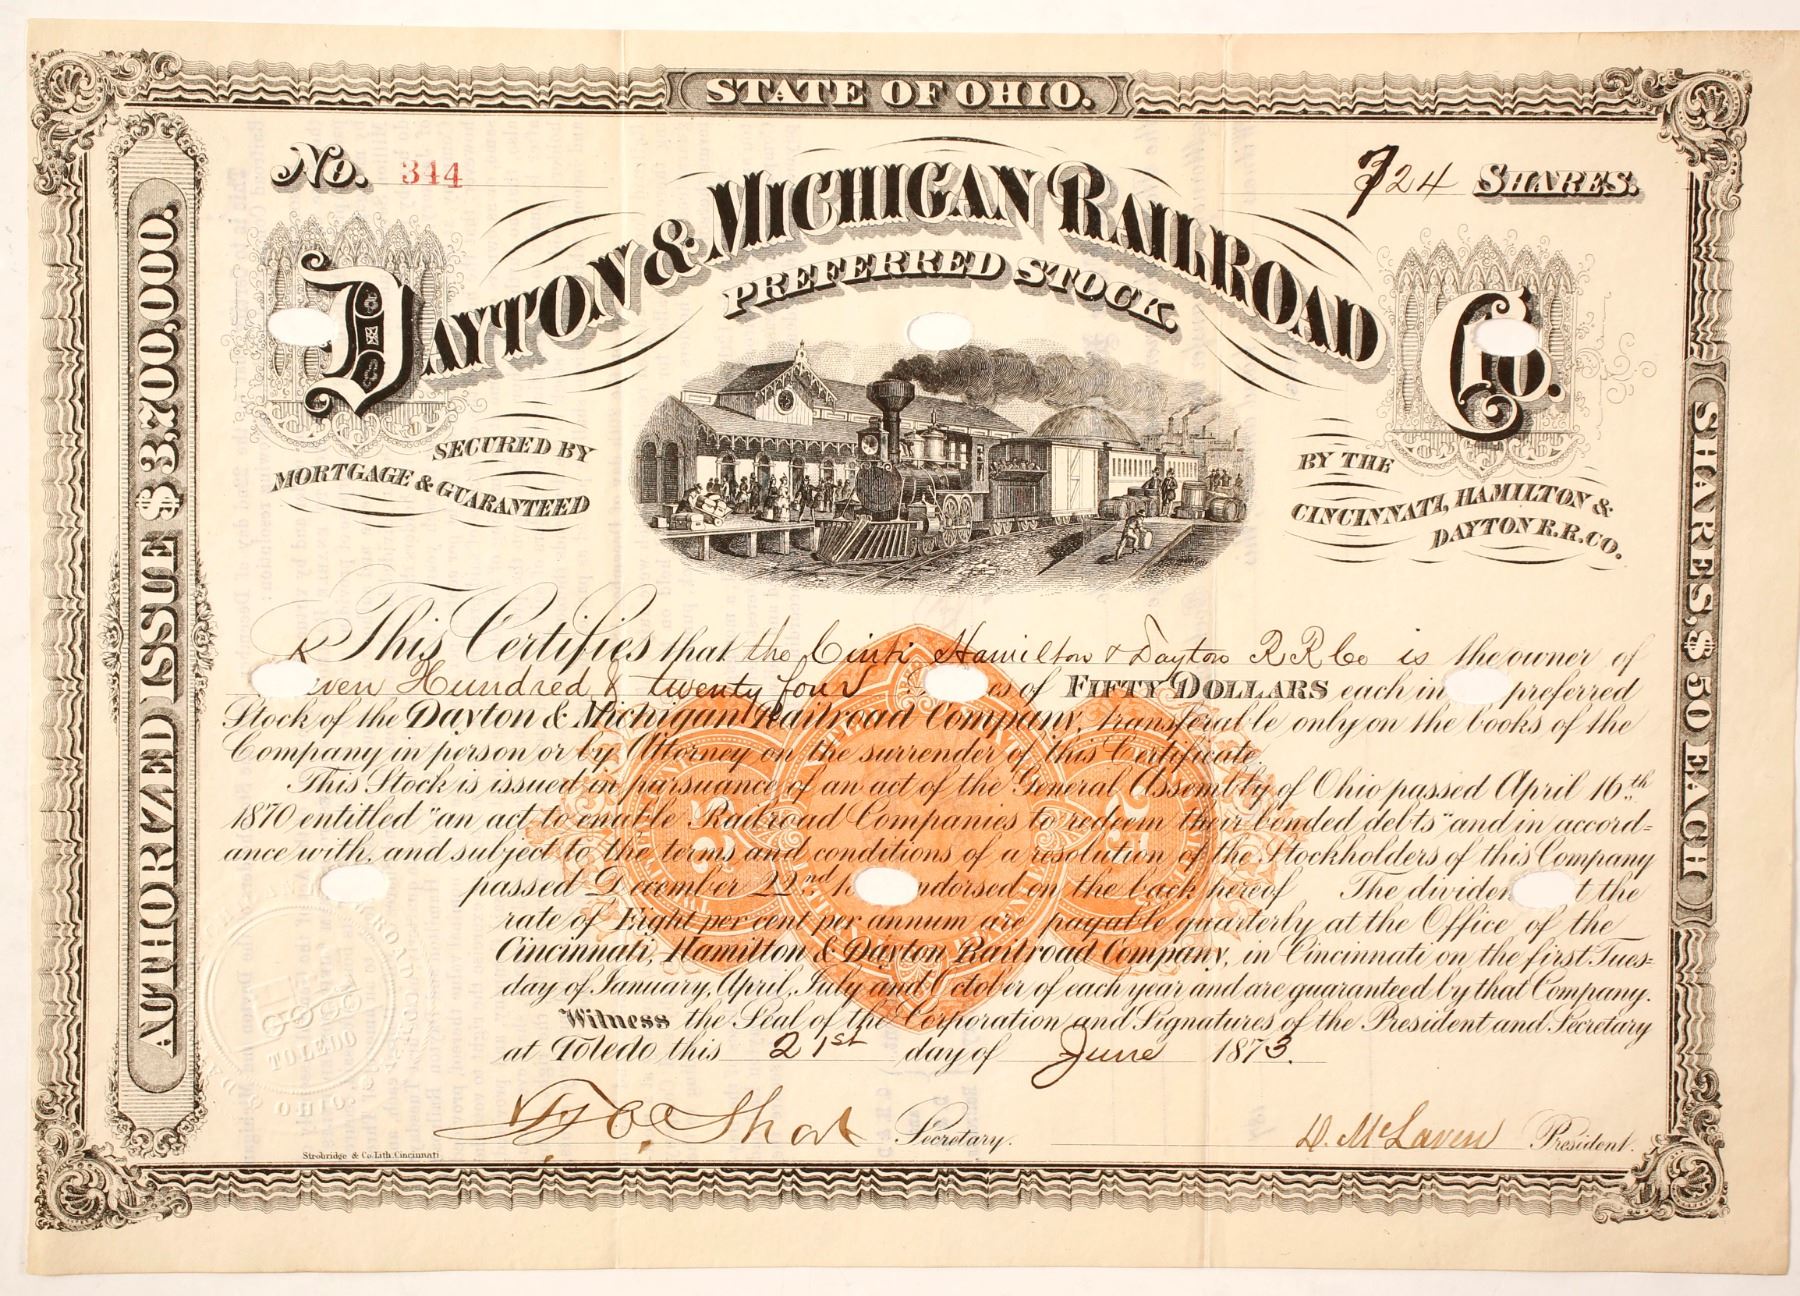 STATE OF OHIO.
No. 344
724 SHARES.
DAYTON & MICHIGAN RAILROAD Co.
PREFERRED STOCK.
SECURED BY
MORTGAGE & GUARANTEED
BY THE
CINCINNATI, HAMILTON &
DAYTON R.R.CO.
AUTHORIZED ISSUE $3,700,000.
SHARES, $50 EACH
This Certifies that the Cinti Hamilton & Dayton R R Co is the owner of
even Hundred & twenty four es of FIFTY DOLLARS each in preferred
Stock of the Dayton & Michigan Railroad Company, transferable only on the books of the
Company in person or by Attorney on the surrender of this Certificate.
This Stock is issued in pursuance of an act of the General Assembly of Ohio passed April 16th
1870 entitled "an act to enable Railroad Companies to redeem their bonded debts" and in accord=
ance with, and subject to the terms and conditions of a resolution of the Stockholders of this Company
passed December 22nd 1 ndorsed on the back hereof The dividen t the
rate of Eight per cent per annum are payable quarterly at the Office of the
Cincinnati, Hamilton & Dayton Railroad Company, in Cincinnati on the first Tues=
day of January, April, July and October of each year and are guaranteed by that Company.
Witness the Seal of the Corporation and Signatures of the President and Secretary
at Toledo this 21st day of June 1873.
Short Secretary.
D. McLaren President.
Strobridge & Co. Lith. Cincinnati
TOLEDO
OHIO.
25
25